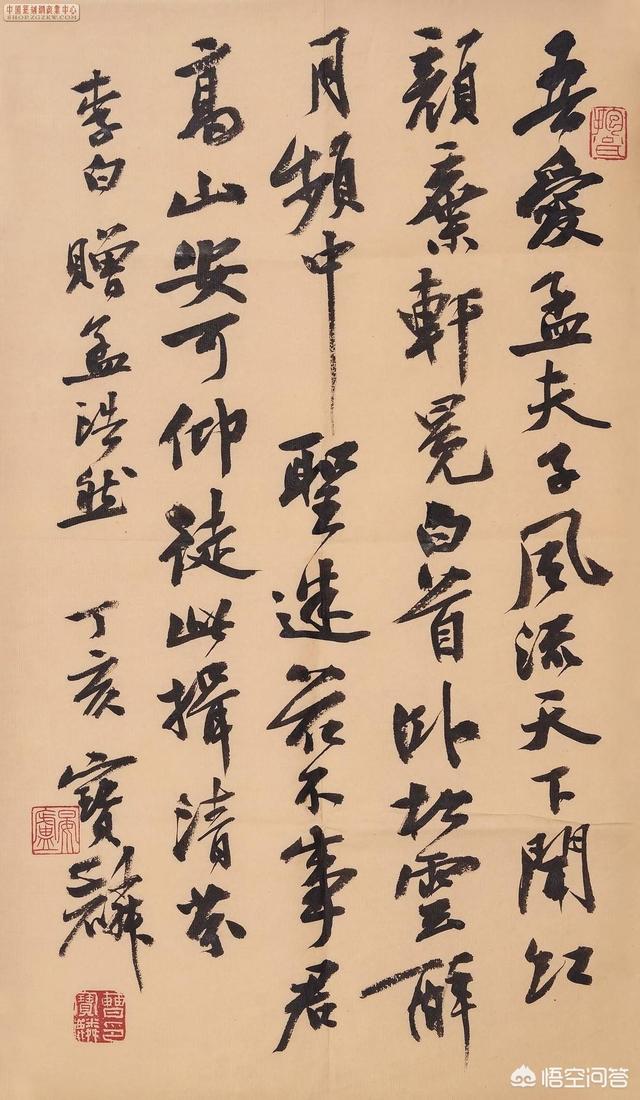 中國篆刻網商業中心
SHOP.ZGZKW.COM
吾愛孟夫子風流天下聞紅
顏棄軒冕白首卧松雲醉
月頻中聖迷花不事君
高山安可仰徒此揖清芬
李白贈孟浩然 丁亥 寶麟
曹印寶麟
悟空问答